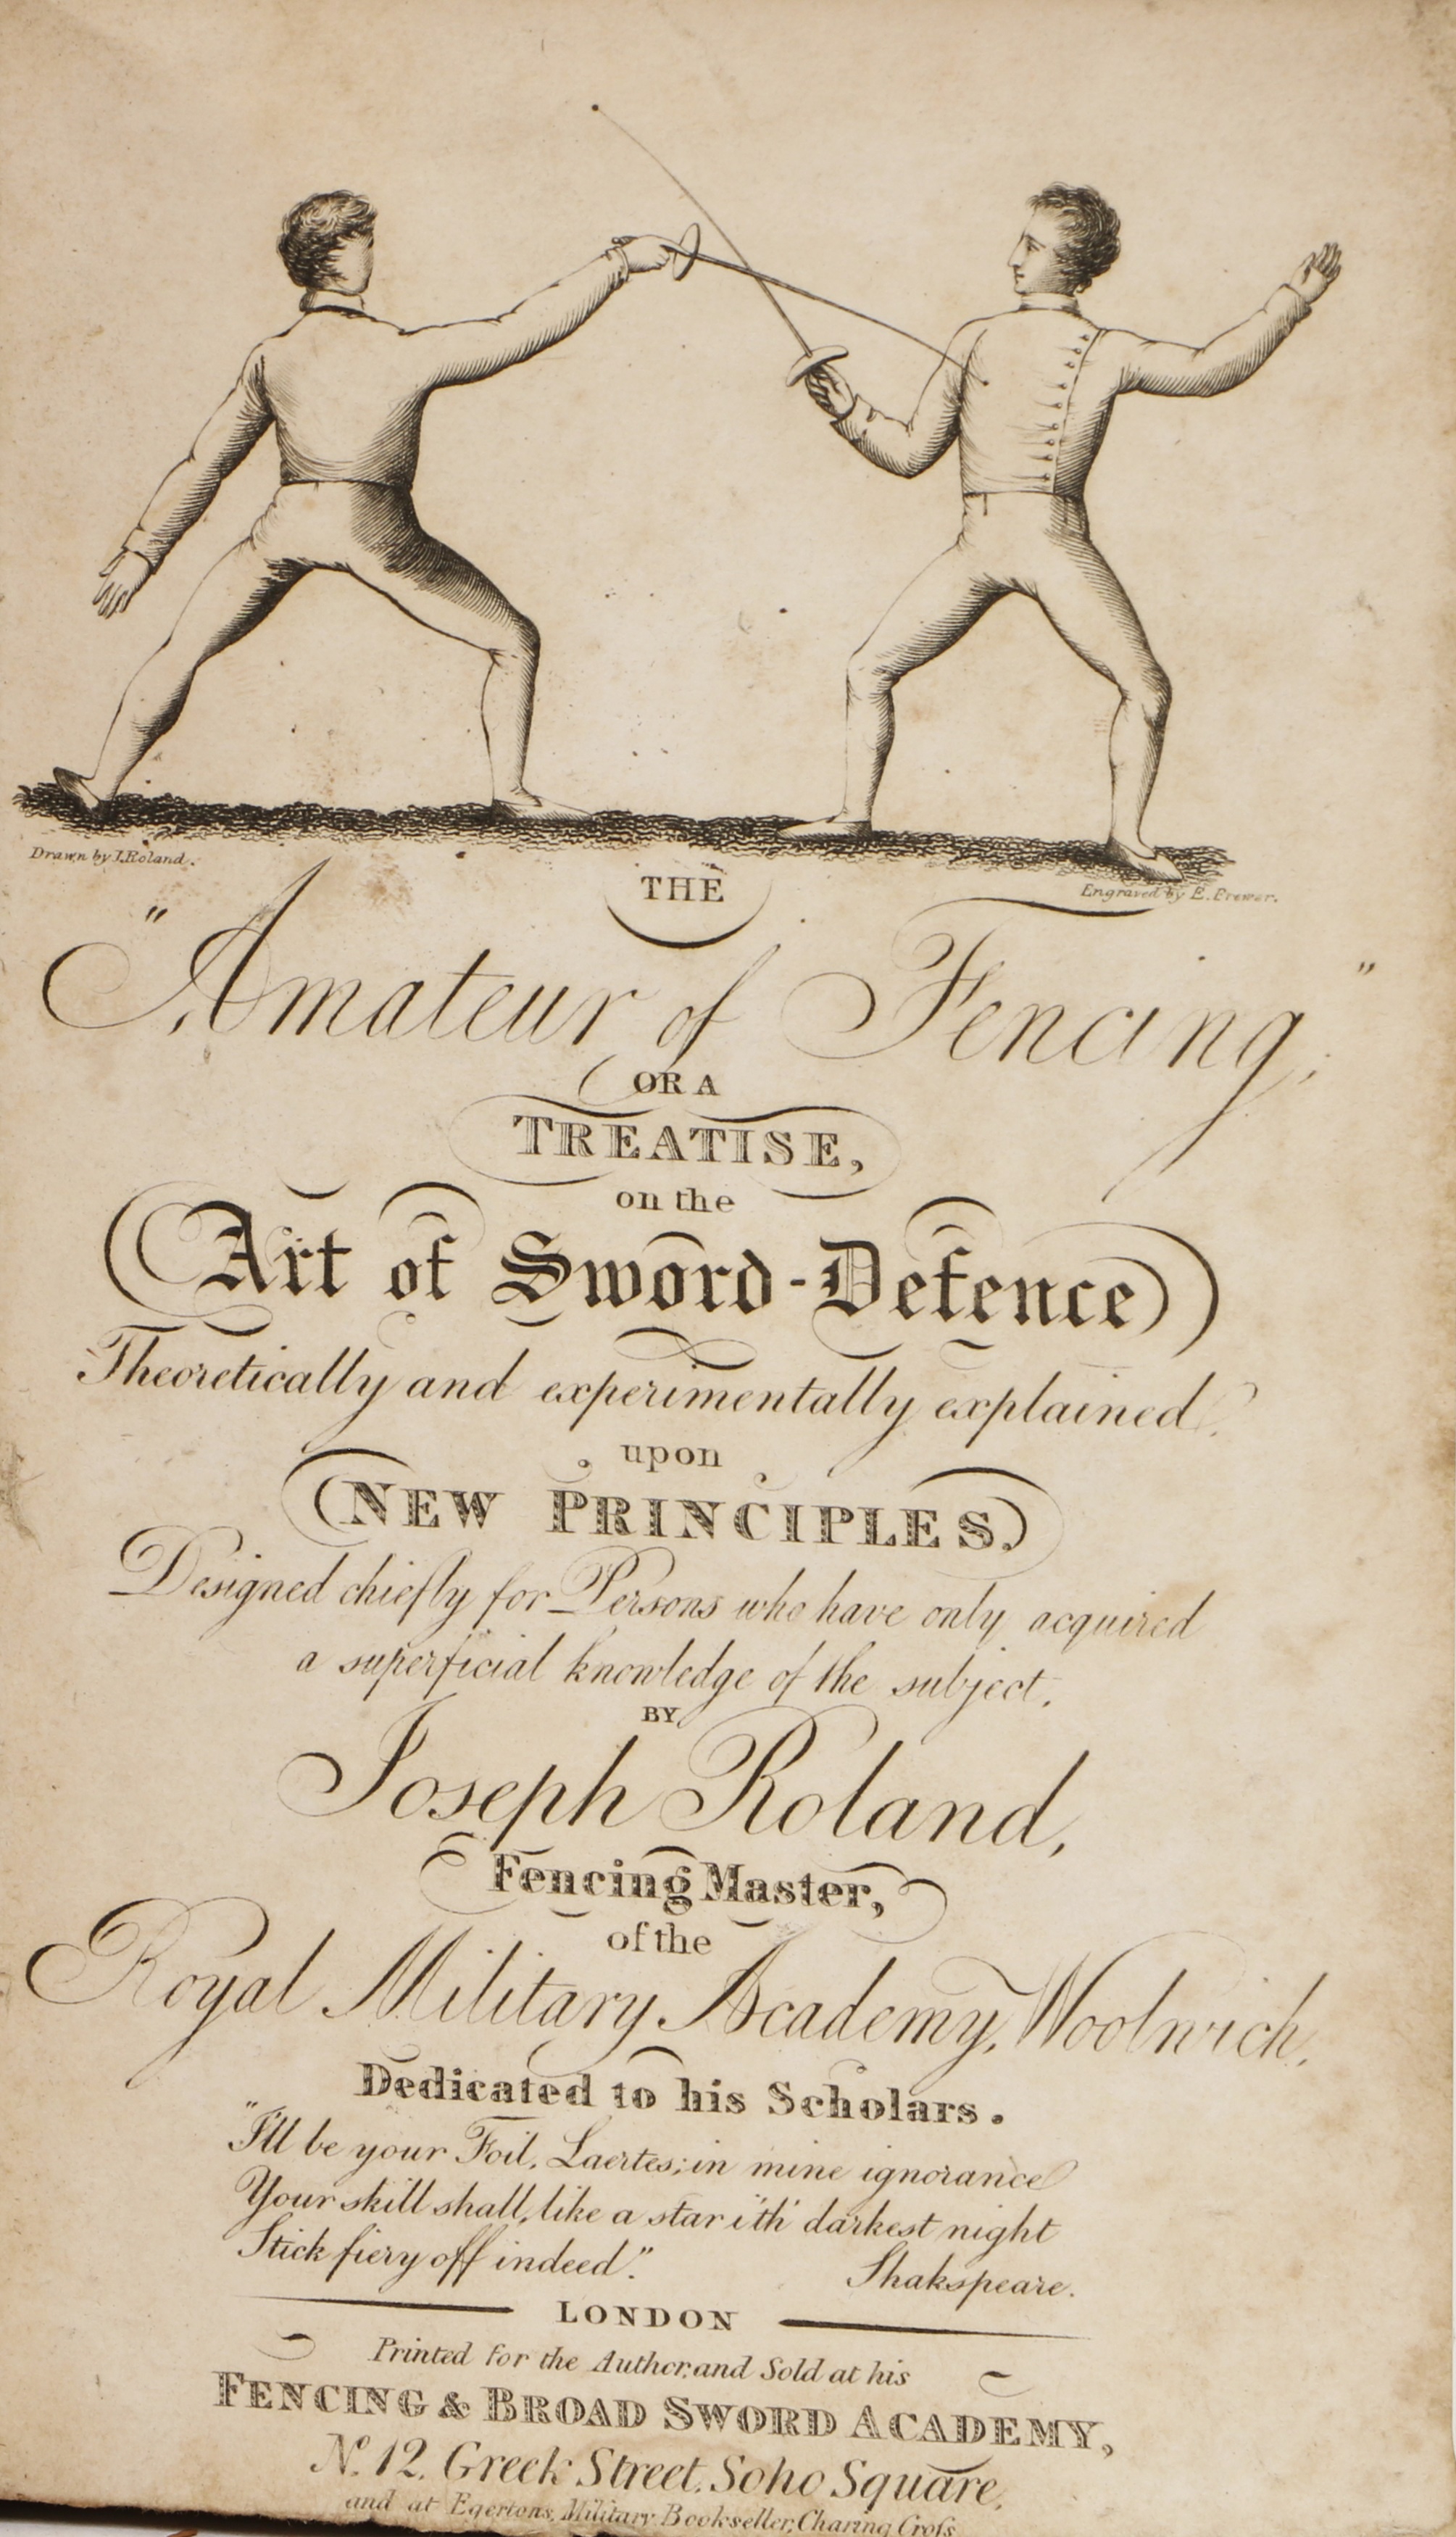 Drawn by J. Roland.
Engraved by E. Brewer.
THE
"Amateur of Fencing;"
OR A
TREATISE,
on the
Art of Sword-Defence
Theoretically and experimentally explained,
upon
NEW PRINCIPLES.
Designed chiefly for Persons who have only acquired
a superficial knowledge of the subject.
BY
Joseph Roland,
Fencing Master,
of the
Royal Military Academy, Woolwich.
Dedicated to his Scholars.
"I'll be your Foil, Laertes; in mine ignorance
Your skill shall, like a star i'th' darkest night
Stick fiery off indeed."
Shakspeare.
LONDON
Printed for the Author, and Sold at his
FENCING & BROAD SWORD ACADEMY,
No. 12. Greek Street, Soho Square,
and at Egertons, Military Bookseller, Charing Croſs